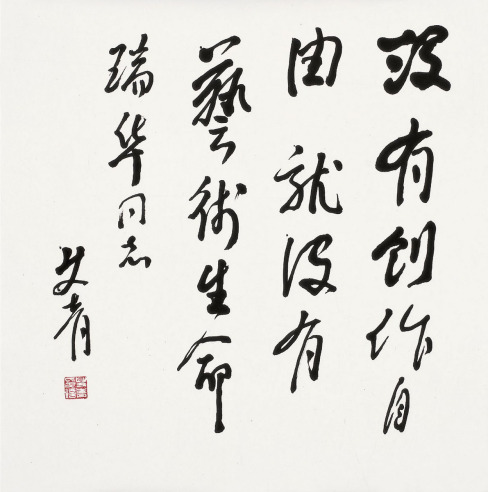 没有创作自
由就没有
藝術生命
瑞华同志
艾青